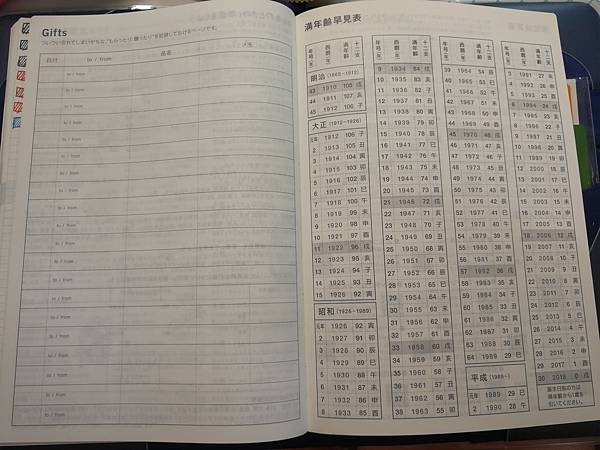 Gifts
ついつい忘れてしまいがちな、"もらったり、贈ったり"を記録しておけるページです。
日付 to / from 品名 メモ
to / from
to / from
to / from
to / from
to / from
to / from
to / from
to / from
to / from
to / from
to / from
to / from
to / from
to / from
to / from
to / from
to / from
to / from
to / from
to / from
to / from
to / from
満年齢早見表
年号(年) 西暦(年) 満年齢 十二支
明治 (1868-1912)
43 1910 108 戌
44 1911 107 亥
45 1912 106 子
大正 (1912-1926)
元年 1912 106 子
2 1913 105 丑
3 1914 104 寅
4 1915 103 卯
5 1916 102 辰
6 1917 101 巳
7 1918 100 午
8 1919 99 未
9 1920 98 申
10 1921 97 酉
11 1922 96 戌
12 1923 95 亥
13 1924 94 子
14 1925 93 丑
15 1926 92 寅
昭和 (1926-1989)
元年 1926 92 寅
2 1927 91 卯
3 1928 90 辰
4 1929 89 巳
5 1930 88 午
6 1931 87 未
7 1932 86 申
8 1933 85 酉
年号(年) 西暦(年) 満年齢 十二支
9 1934 84 戌
10 1935 83 亥
11 1936 82 子
12 1937 81 丑
13 1938 80 寅
14 1939 79 卯
15 1940 78 辰
16 1941 77 巳
17 1942 76 午
18 1943 75 未
19 1944 74 申
20 1945 73 酉
21 1946 72 戌
22 1947 71 亥
23 1948 70 子
24 1949 69 丑
25 1950 68 寅
26 1951 67 卯
27 1952 66 辰
28 1953 65 巳
29 1954 64 午
30 1955 63 未
31 1956 62 申
32 1957 61 酉
33 1958 60 戌
34 1959 59 亥
35 1960 58 子
36 1961 57 丑
37 1962 56 寅
38 1963 55 卯
年号(年) 西暦(年) 満年齢 十二支
39 1964 54 辰
40 1965 53 巳
41 1966 52 午
42 1967 51 未
43 1968 50 申
44 1969 49 酉
45 1970 48 戌
46 1971 47 亥
47 1972 46 子
48 1973 45 丑
49 1974 44 寅
50 1975 43 卯
51 1976 42 辰
52 1977 41 巳
53 1978 40 午
54 1979 39 未
55 1980 38 申
56 1981 37 酉
57 1982 36 戌
58 1983 35 亥
59 1984 34 子
60 1985 33 丑
61 1986 32 寅
62 1987 31 卯
63 1988 30 辰
64 1989 29 巳
平成 (1989-)
元年 1989 29 巳
2 1990 28 午
年号(年) 西暦(年) 満年齢 十二支
3 1991 27 未
4 1992 26 申
5 1993 25 酉
6 1994 24 戌
7 1995 23 亥
8 1996 22 子
9 1997 21 丑
10 1998 20 寅
11 1999 19 卯
12 2000 18 辰
13 2001 17 巳
14 2002 16 午
15 2003 15 未
16 2004 14 申
17 2005 13 酉
18 2006 12 戌
19 2007 11 亥
20 2008 10 子
21 2009 9 丑
22 2010 8 寅
23 2011 7 卯
24 2012 6 辰
25 2013 5 巳
26 2014 4 午
27 2015 3 未
28 2016 2 申
29 2017 1 酉
30 2018 0 戌
誕生日前の方は
満年齢から1歳を
引いてください。